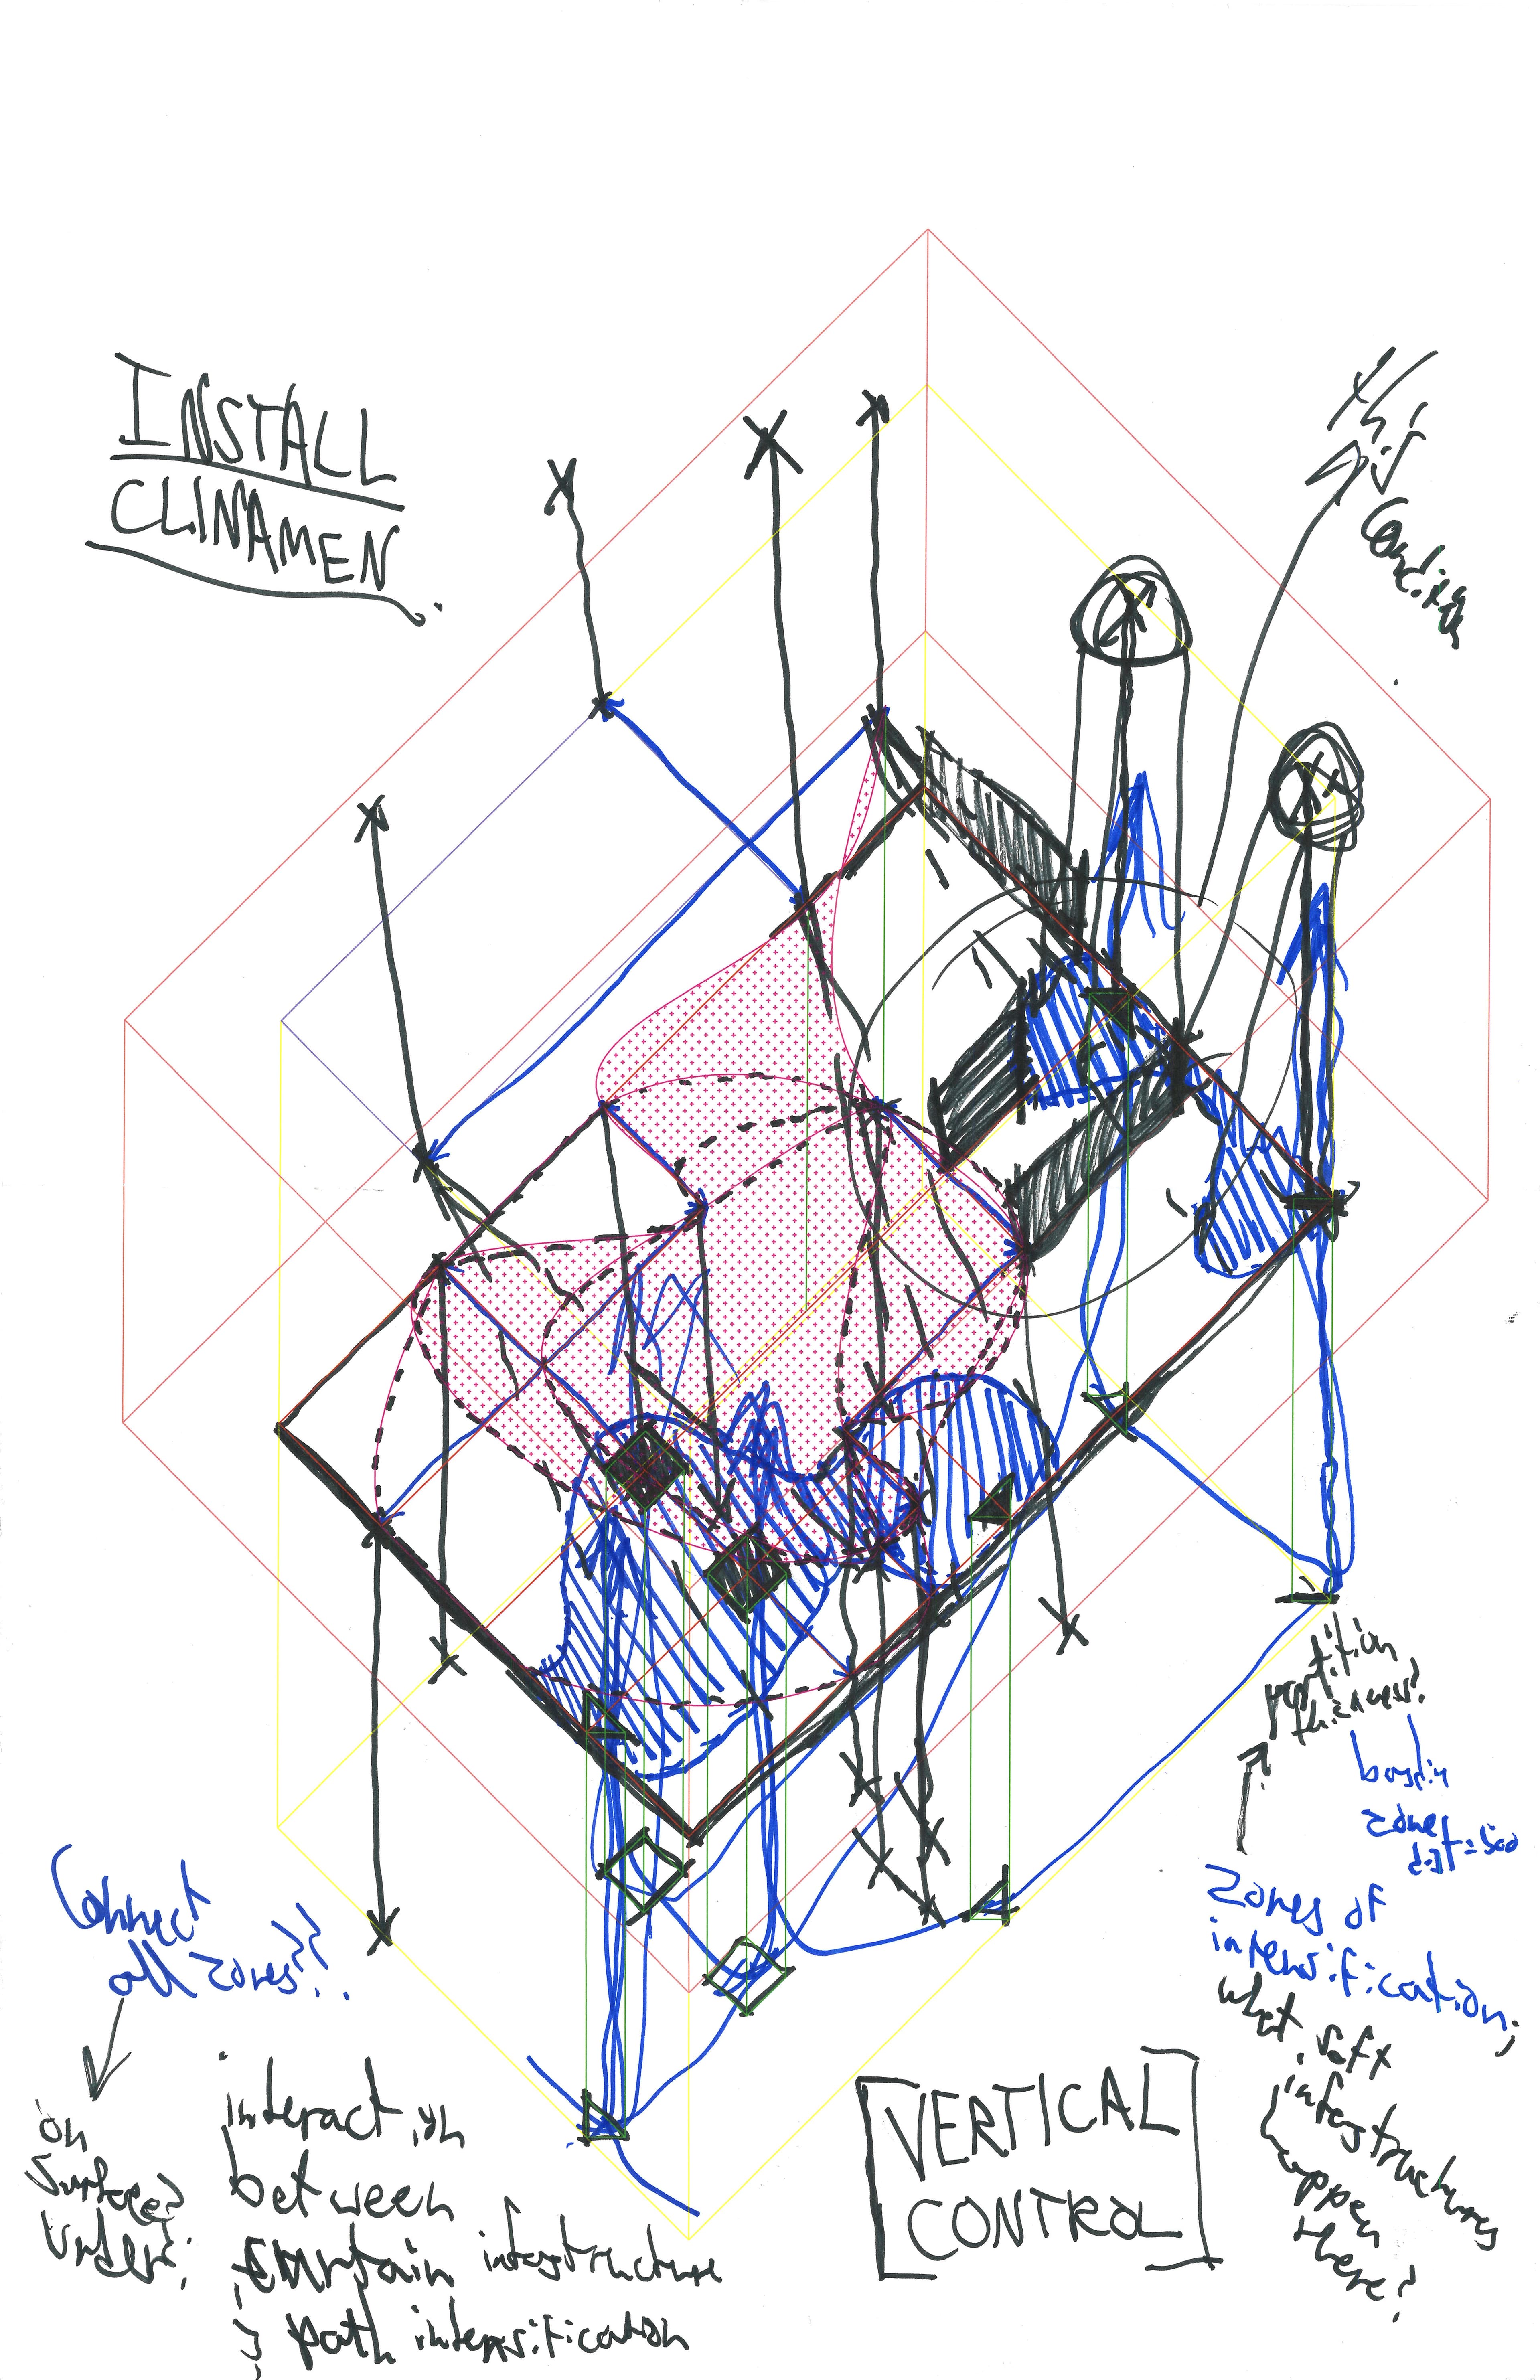 INSTALL
CLINAMEN
this
is
Condition
partition
thickness?
zones
Zones of
intensification;
what soft
infrastructures
happen
here?
Connect
all zones??
on
surface?
under?
interaction
between
curtain infrastructure
& path intensification
VERTICAL
CONTROL